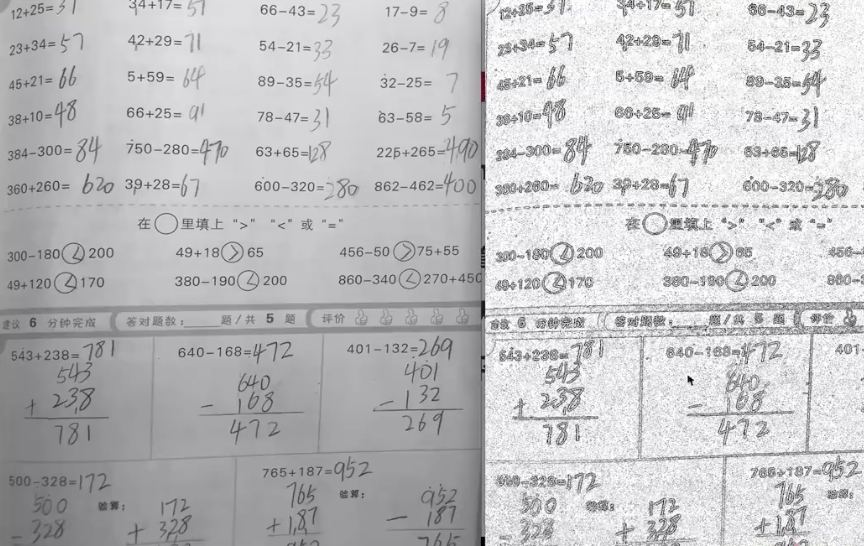 12+25=37 34+17=51 66-43=23 17-9=8
23+34=57 42+29=71 54-21=33 26-7=19
45+21=66 5+59=64 89-35=54 32-25=7
38+10=48 66+25=91 78-47=31 63-58=5
384-300=84 750-280=470 63+65=128 225+265=490
360+260=620 39+28=67 600-320=280 862-462=400
在○里填上 ">" "<" 或 "="
300-180<200 49+18>65 456-50>75+55
49+120<170 380-190<200 860-340<270+450
建议 6 分钟完成 答对题数:____题/共 5 题 评价
543+238=781 640-168=472 401-132=269
543 640 401
+ 238 - 168 - 132
781 472 269
500-328=172 765+187=952
500 验算: 172 765 验算: 952
- 328 + 328 + 187 - 187
765
12+25=37 34+17=51 66-43=23
23+34=57 42+29=71 54-21=33
45+21=66 5+59=64 89-35=54
38+10=48 66+25=91 78-47=31
384-300=84 750-280=470 63+65=128
360+260=620 39+28=67 600-320=280
在○里填上 ">" "<" 或 "="
300-180<200 49+18>65 456-
49+120<170 380-190<200 860-
建议 6 分钟完成 答对题数: 题/共 5 题 评价
543+238=781 640-168=472 401-
543 640
+ 238 - 168
781 472
500-328=172 765+187=952
500 验算: 172 765 验算:
- 328 + 328 + 187